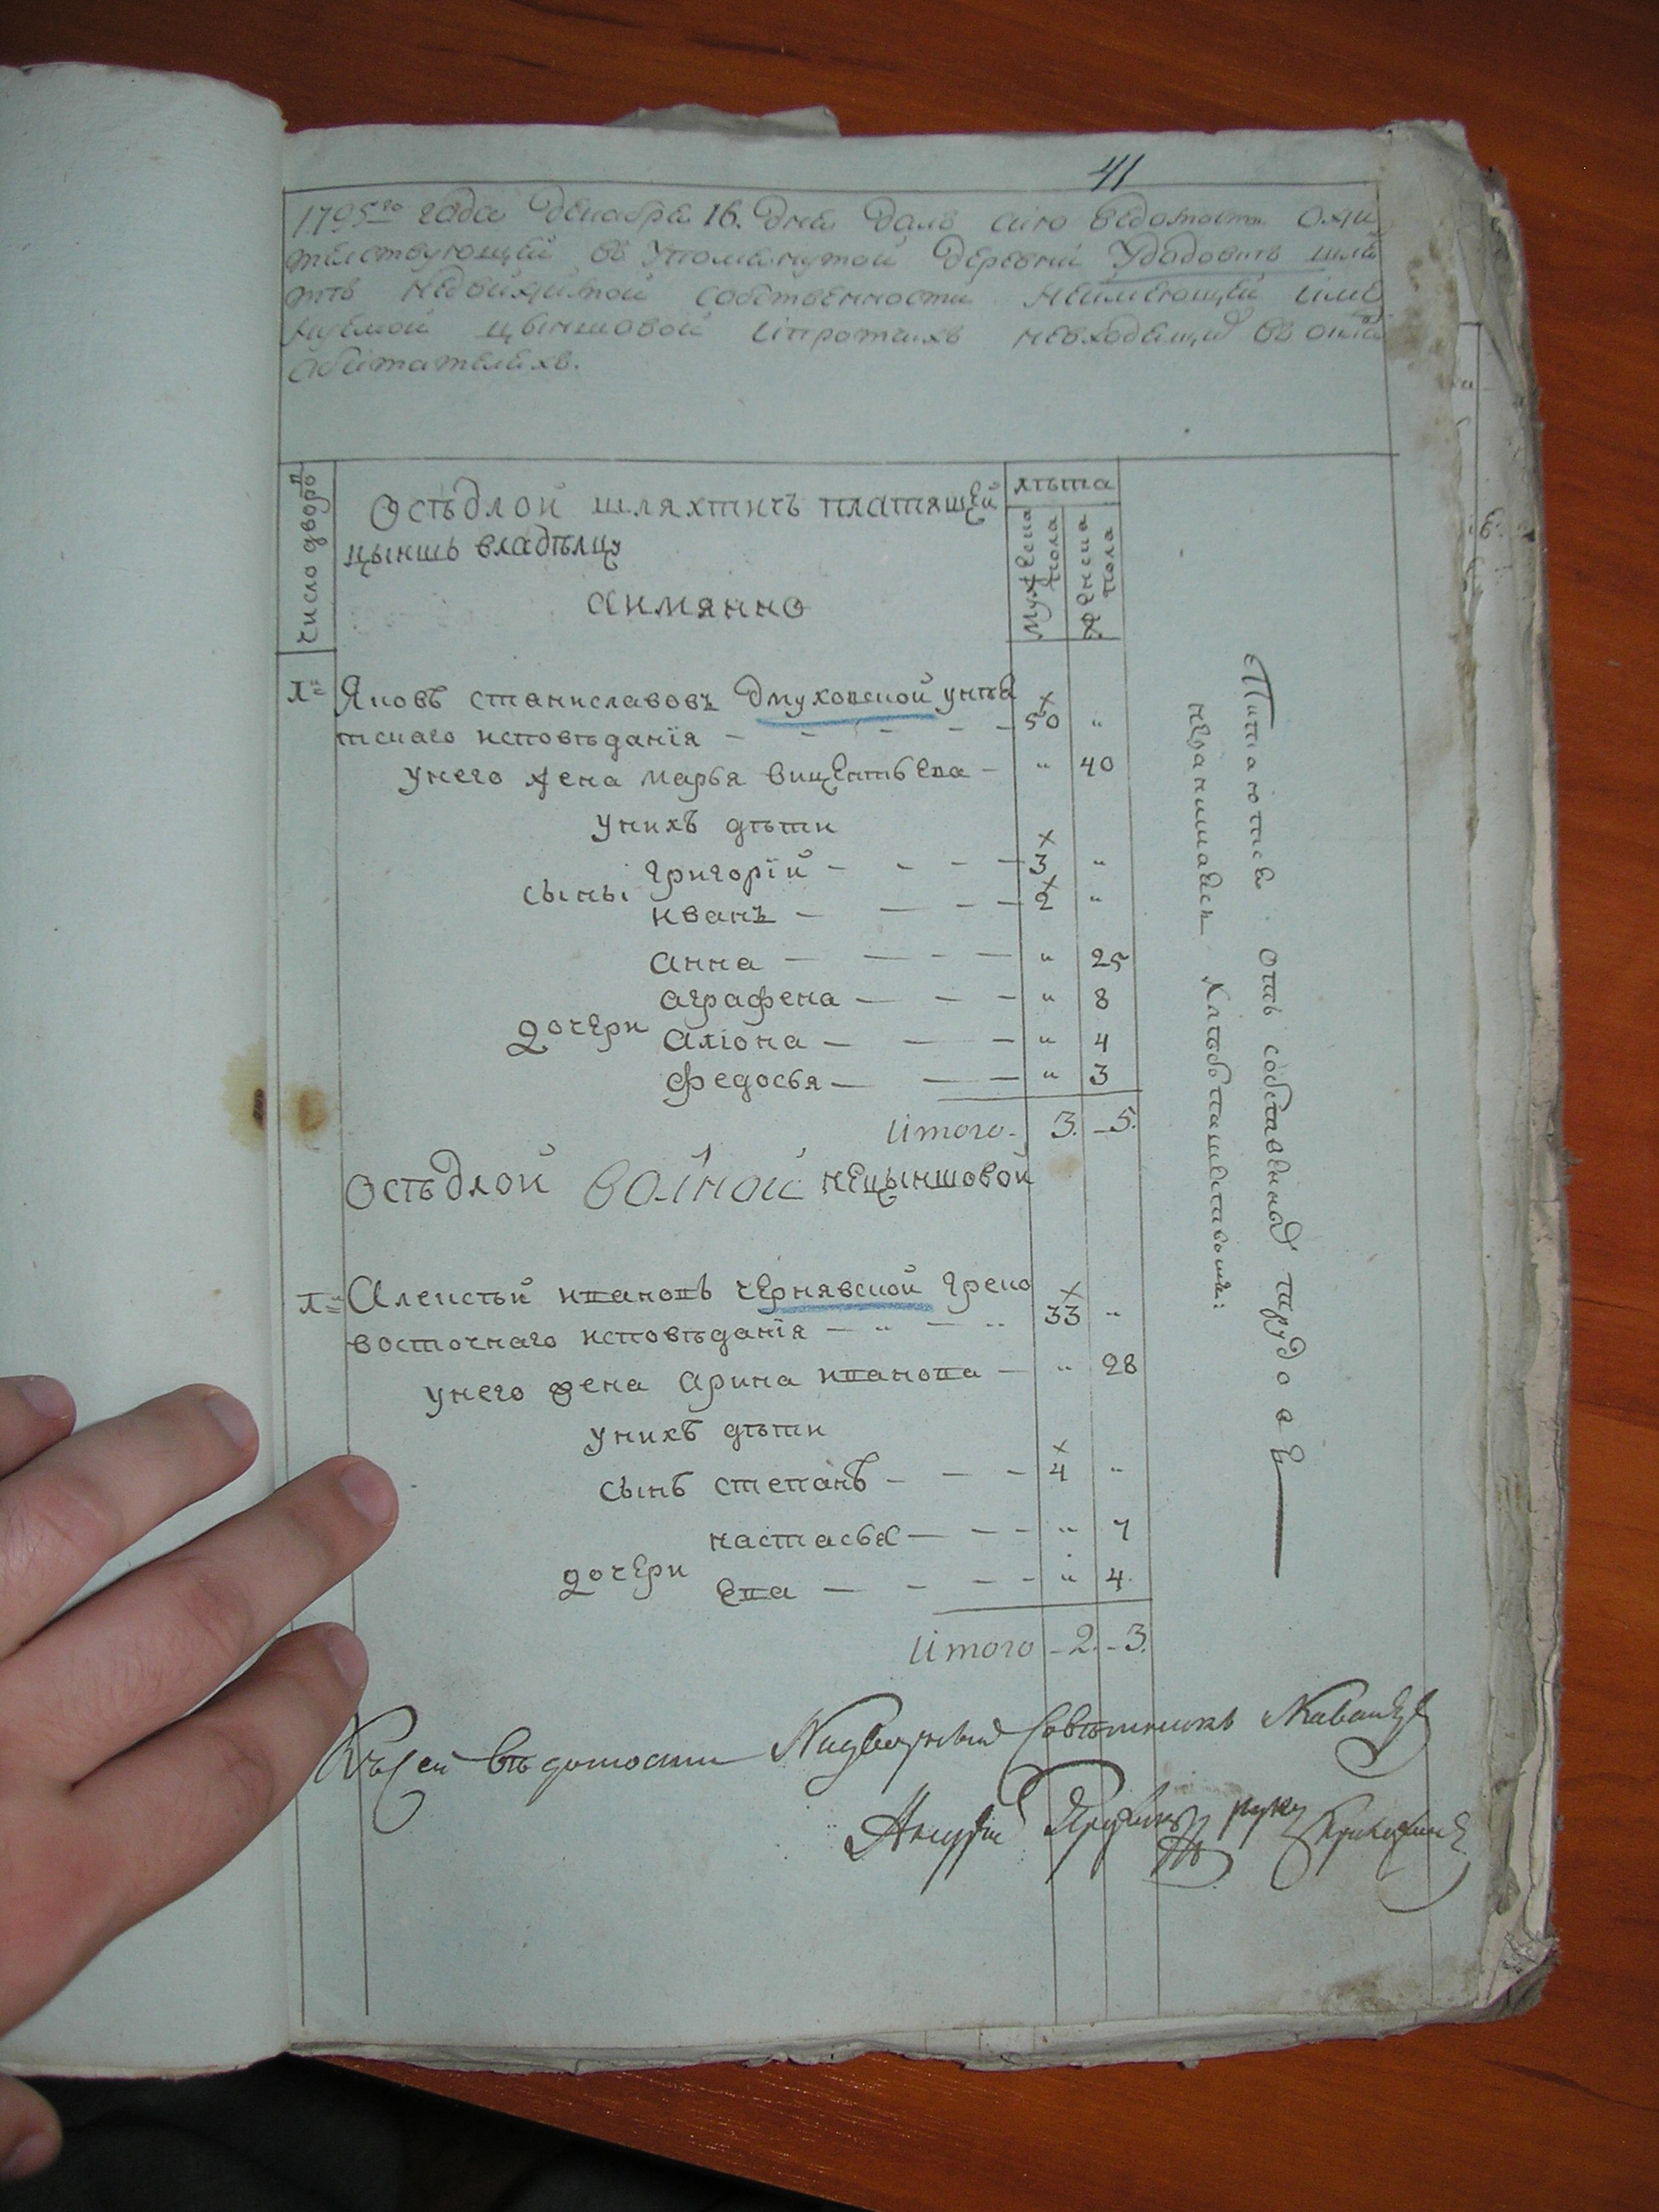 41
1795го года декабря 16. дня далъ сию ведомость ожи
тельствующей въ упомянутой деревни Удодовкъ шлях
тъ недвижимой собственности неимеющей имъ
нуемой цыншовой ипротчихъ невходящихъ въ окладъ
обитателяхъ.
число дворовъ
Осѣдлой шляхтичъ платящей
цыншъ владѣлцу
Аимянно
лѣта
мужеска пола
женска пола
1й Яковъ станиславовъ Дмуховской униа
тскаго исповѣданїя - - - - - 50 "
унего жена марья вицентьева - " 40
унихъ дѣти
сыны григорїй - - - - 3 "
иванъ - - - - 2 "
анна - - - - " 25
аграфена - - - " 8
дочери алiона - - - " 4
федосья - - - " 3
итого. 3. 5.
осѣдлой волной нецыншовой
1й Алексѣй ивановъ чернявской греко
восточнаго исповѣданїя - " - " 33 "
унего жена арина иванова - " 28
унихъ дѣти
сынъ степанъ - - - 4 "
настасья - - - " 7
дочери ева - - - - " 4.
итого 2. 3.
Питаются отъ собственныхъ трудовъ
незанимаясь хлѣбопашествомъ:
Къ сей вѣдомости Надворный Совѣтникъ
руку приложилъ